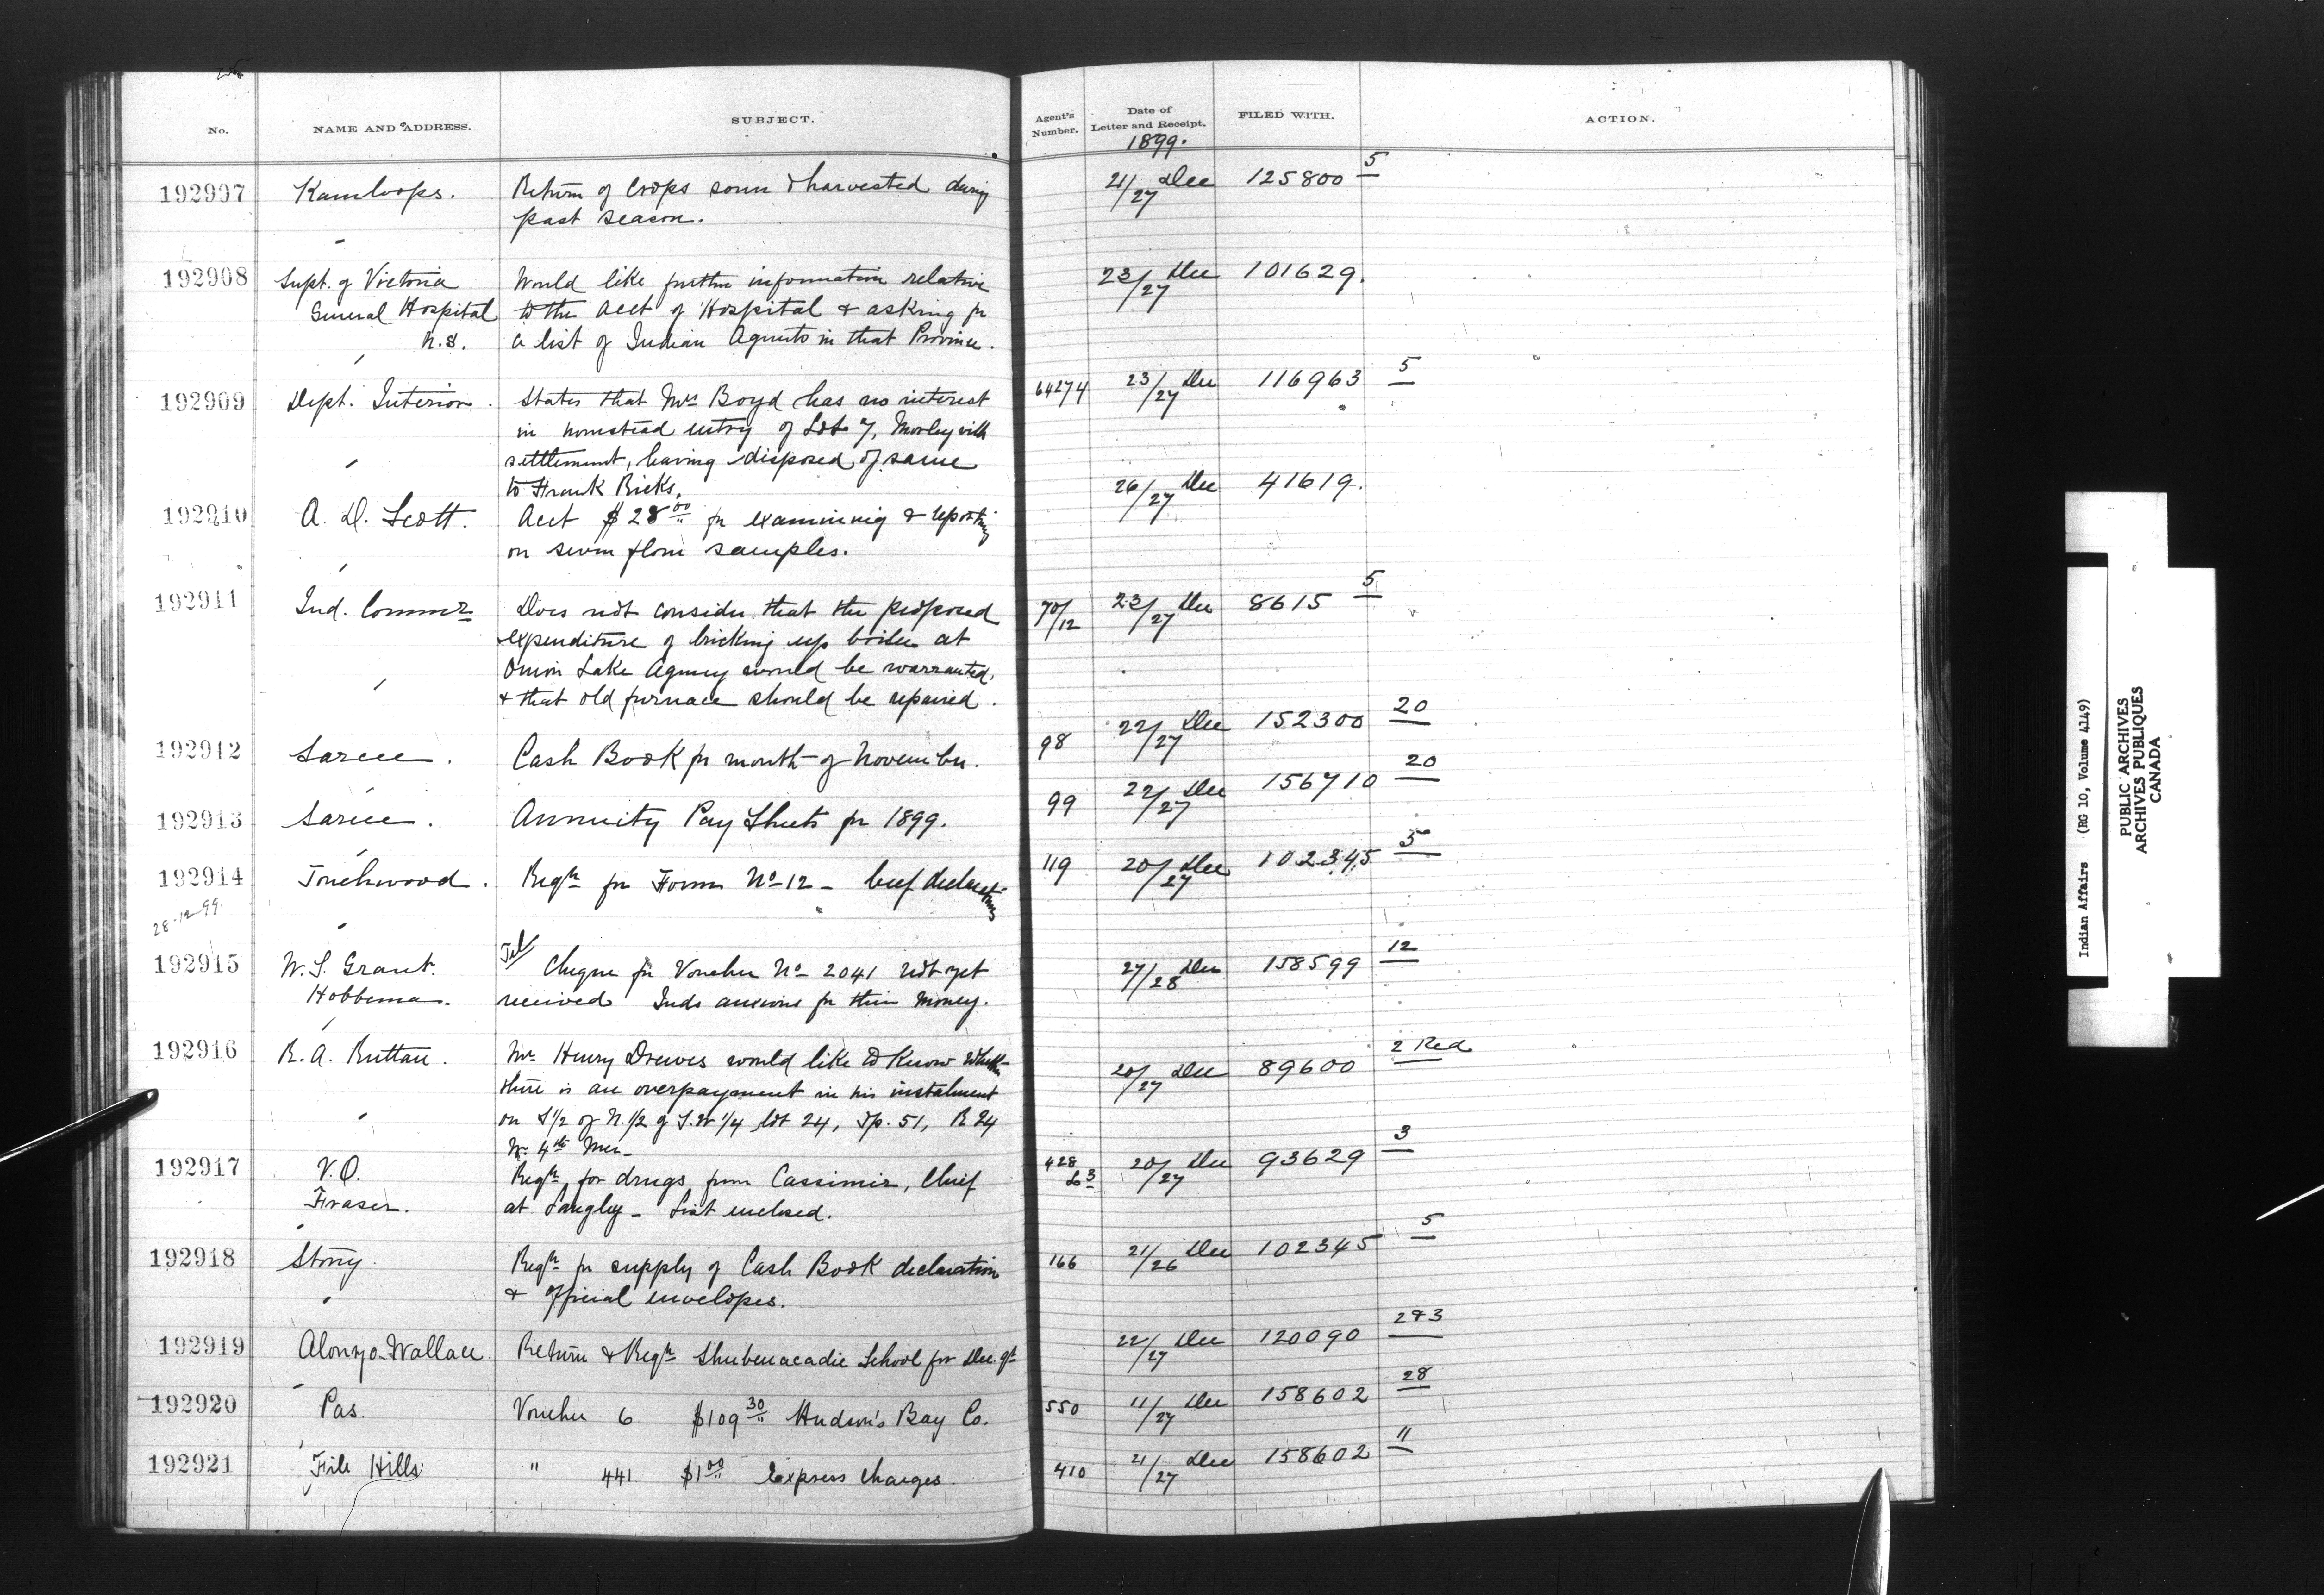 No.
NAME AND ADDRESS.
SUBJECT.
Agent's Number.
Date of Letter and Receipt.
FILED WITH.
ACTION.
1899.
192907 Kamloops. Return of Crops sown & harvested during 21/27 Dec 125800 5
past season.
192908 Supt. of Victoria Would like further information relative 23/27 Dec 101629.
General Hospital to the acct of Hospital & asking for
N.S. a list of Indian Agents in that Province.
192909 Dept. Interior. States that Mrs Boyd has no interest 64274 23/27 Dec 116963 5
in homestead entry of Lot 7, Morleyville
settlement, having disposed of same
to Frank Ricks.
192910 A. D. Scott. Acct $28 00 for examining & reporting 26/27 Dec 41619.
on seven flour samples.
192911 Ind. Commr Does not consider that the proposed 70/12 23/27 Dec 8615 5
expenditure of bricking up boiler at
Onion Lake Agency would be warranted,
& that old furnace should be repaired.
192912 Sarcee. Cash Book for month of November. 98 22/27 Dec 152300 20
192913 Sarcee. Annuity Pay Sheets for 1899. 99 22/27 Dec 156710 20
192914 Touchwood. Reqn for Forms No 12 - beef declarations 119 20/27 Dec 102345 5
28-12-99
192915 W. S. Grant. Tel Cheque for Voucher No 2041 not yet 27/28 Dec 158599 12
Hobbema. received Inds anxious for their money.
192916 R. A. Ruttan. Mr Henry Drewes would like to know whether 20/27 Dec 89600 2 Red
there is an overpayment in his instalment
on S 1/2 of N. 1/2 of S.W 1/4 lot 24, Tp. 51, R 24
W. 4th Mer-
192917 V.O. Reqn for drugs from Cassimir, Chief 428 L3 20/27 Dec 93629 3
Fraser. at Langley - List enclosed.
192918 Stony. Reqn for supply of Cash Book declaration 166 21/26 Dec 102345 5
& official envelopes.
192919 Alonzo Wallace. Return & Reqn Shubenacadie School for Dec. qr 22/27 Dec 120090 2&3
192920 Pas. Voucher 6 $109 30 Hudson's Bay Co. 550 11/27 Dec 158602 28
192921 File Hills " 441 $1 00 Express Charges. 410 21/27 Dec 158602 11
Indian Affairs (RG 10, Volume 4149)
PUBLIC ARCHIVES
ARCHIVES PUBLIQUES
CANADA